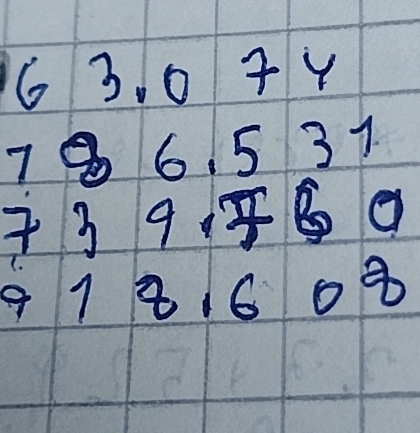 63.074
186.531
739.760
918.608